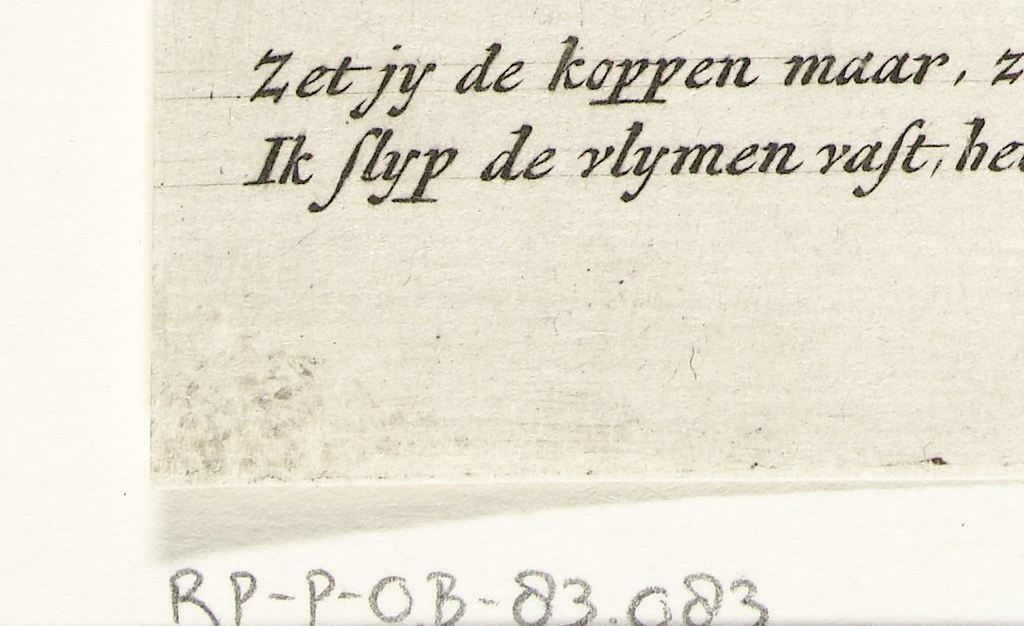 Zet jy de koppen maar, z
Ik ſlyp de vlymen vaſt, he
RP-P-OB-83.083